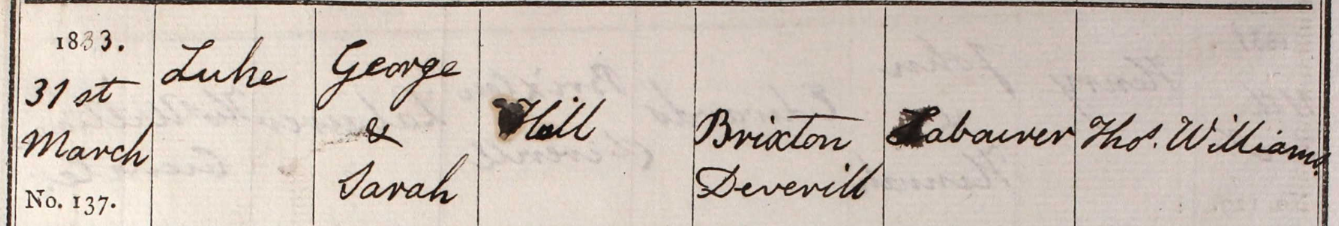 1833.
31st
March
No. 137.
Luke
George
&
Sarah
Hill
Brixton
Deverill
Labourer
Thos. Williams.